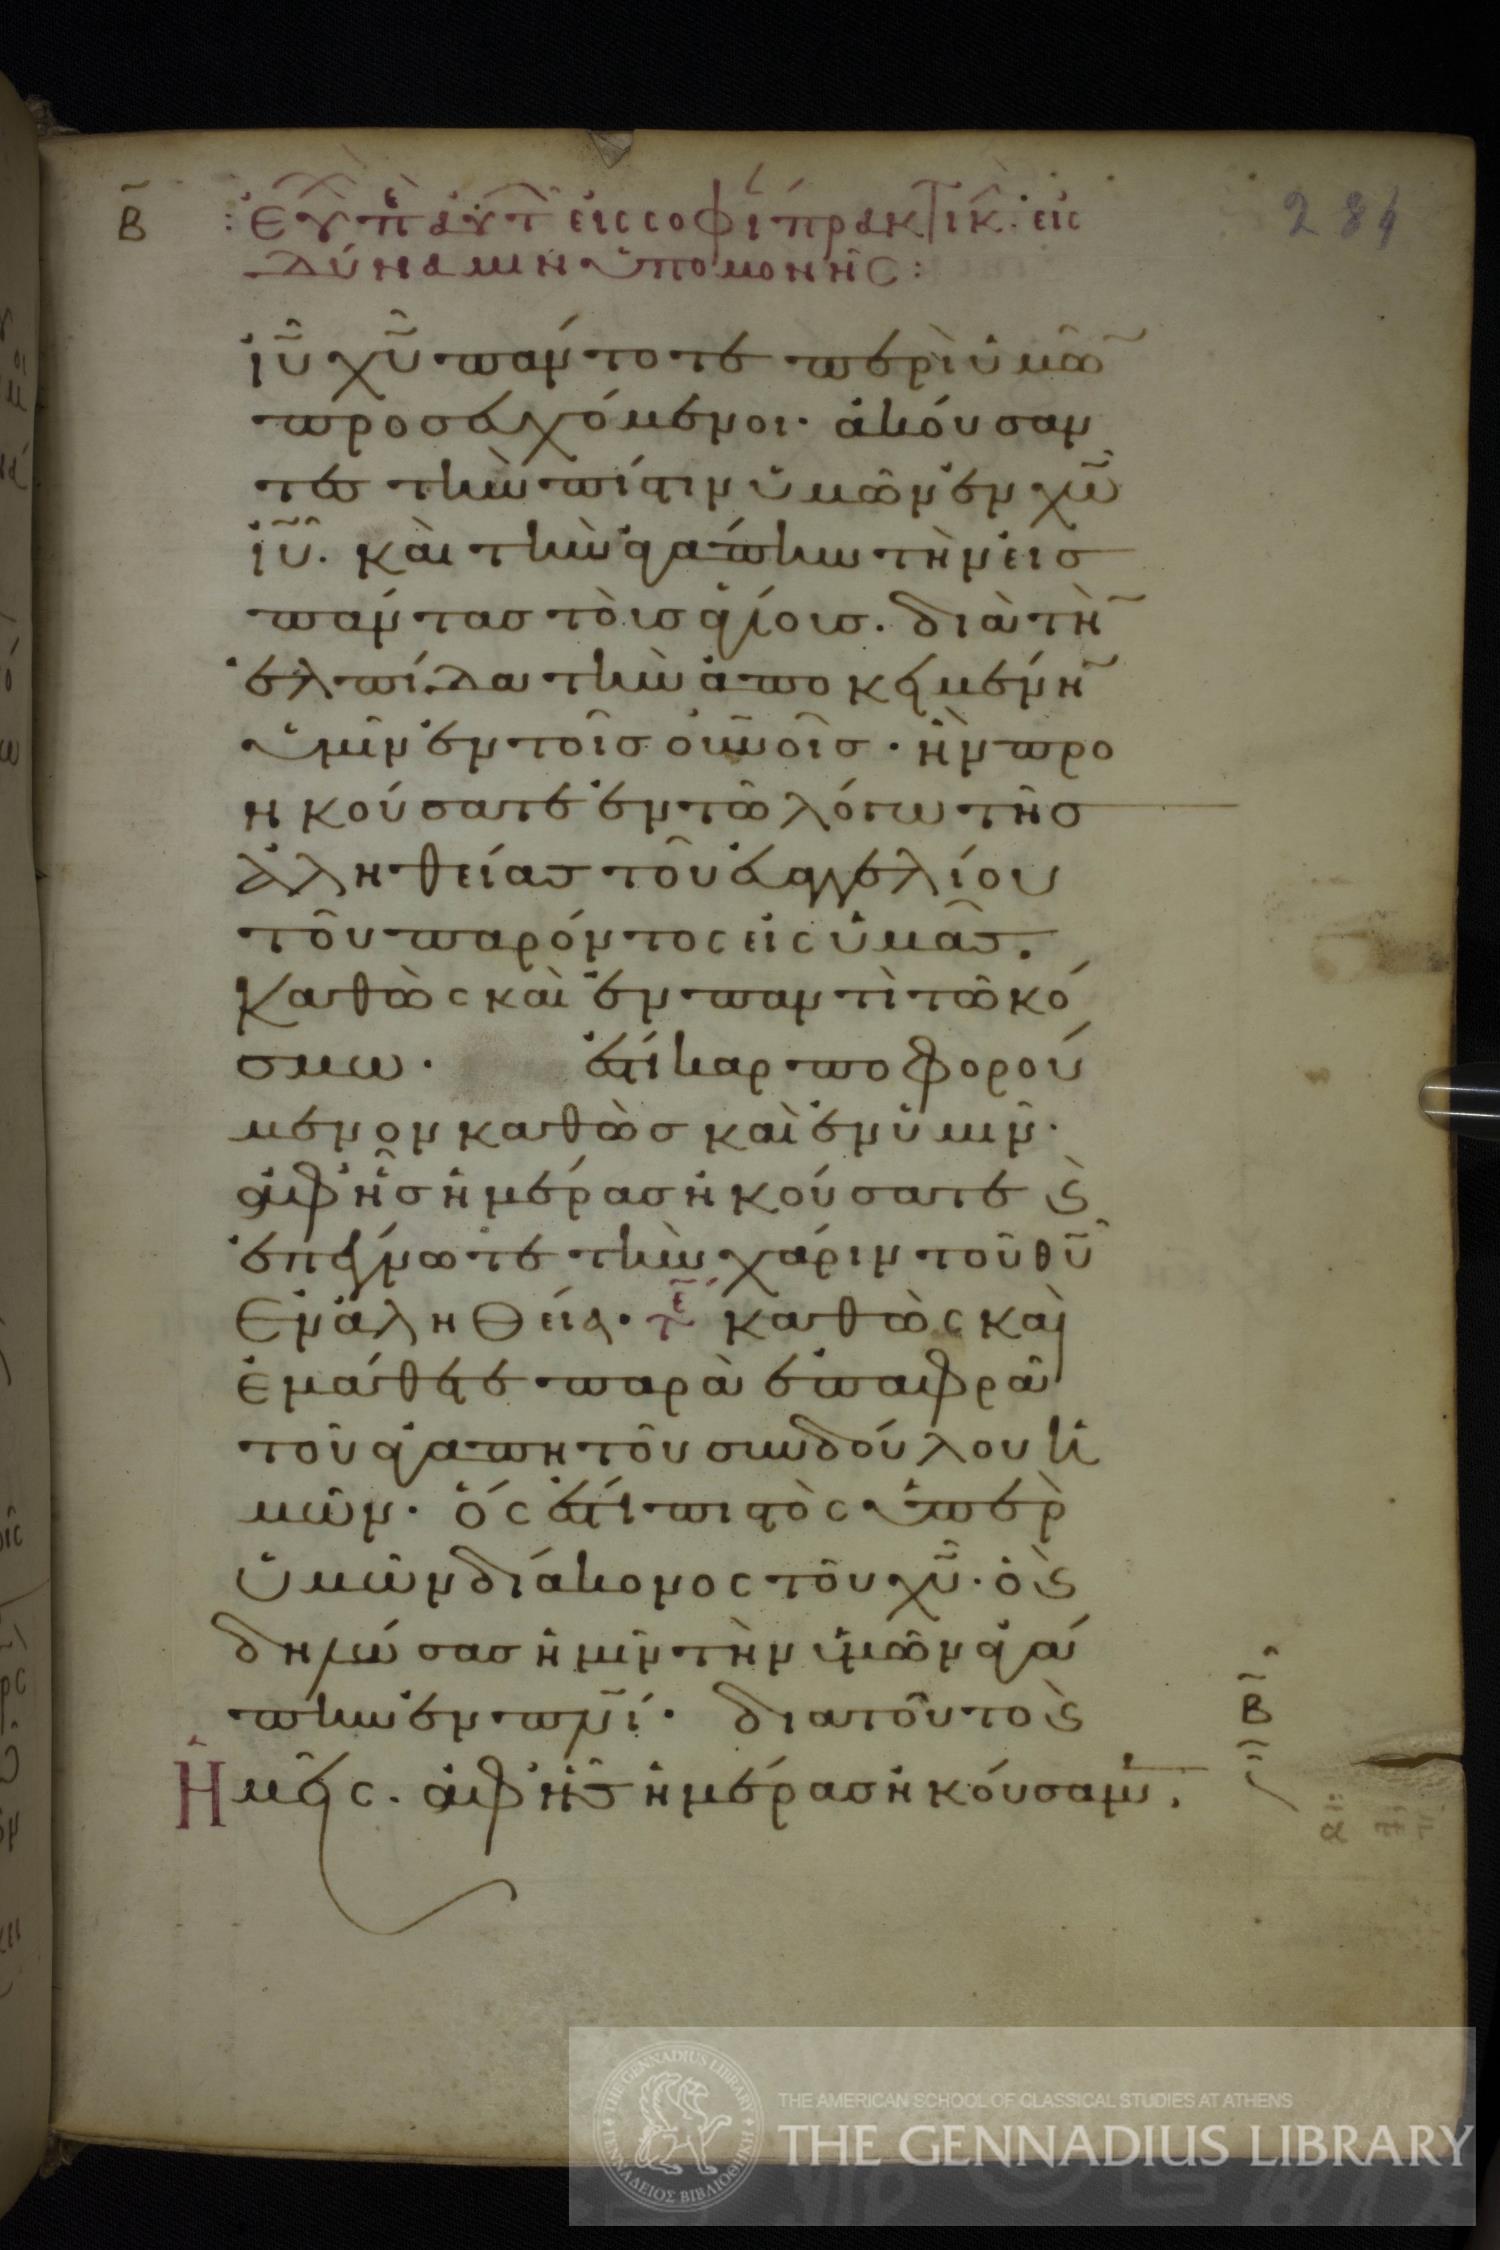 Β̄
281
:εὐχ ὑπὲ αὐτ εἰς σοφί πρακτικ. εἰς
δύναμιν ὑπομονῆς:
ἰῦ χῦ πάντοτε περὶ ὑμῶ
προσευχόμενοι· ἀκούσαν
τες τὴν πίστιν ὑμῶν ἐν χω
ἰῦ. καὶ τὴν ἀγάπην τὴν εἰσ
πάντας τοὺσ ἁγίους. διὰ τὴ
ἐλπίδα τὴν ἀποκειμένη
ὑμῖν ἐν τοῖσ οὐνοῖσ· ἣν προ
ηκούσατε ἐν τῶ λόγω τῆσ
ἀληθείας τοῦ εὐαγγελίου
τοῦ παρόντος εἰς ὑμᾶς.
καθὼς καὶ ἐν παντὶ τῶ κό
σμω· ἐστί καρποφορού
μενον καθὼσ καὶ ἐν ὑμῖν·
ἀφ ἧσ ἡμέρασ ἠκούσατε ϗ
ἐπέγνωτε τὴν χάριν τοῦ θῦ
ἐν ἀληθεία· τε καθὼς καὶ
ἐμάθετε παρὰ ἐπαφρᾶ
τοῦ ἀγαπητοῦ συνδούλου ἡ
μῶν· ὅς ἐστί πιστὸς ὑπὲρ
ὑμῶν διάκονος τοῦ χῦ· ὁ ϗ
δηλώσασ ἡμῖν τὴν ὑμῶν ἀγά
πην ἐν πνί· διατοῦτο ϗ
Β̄
Ἡμεῖς. ἀφ ἧς ἡμέρασ ἠκούσαμεν.
THE AMERICAN SCHOOL OF CLASSICAL STUDIES AT ATHENS
THE GENNADIUS LIBRARY
THE GENNADIUS LIBRARY
ΓΕΝΝΑΔΕΙΟΣ ΒΙΒΛΙΟΘΗΚΗ